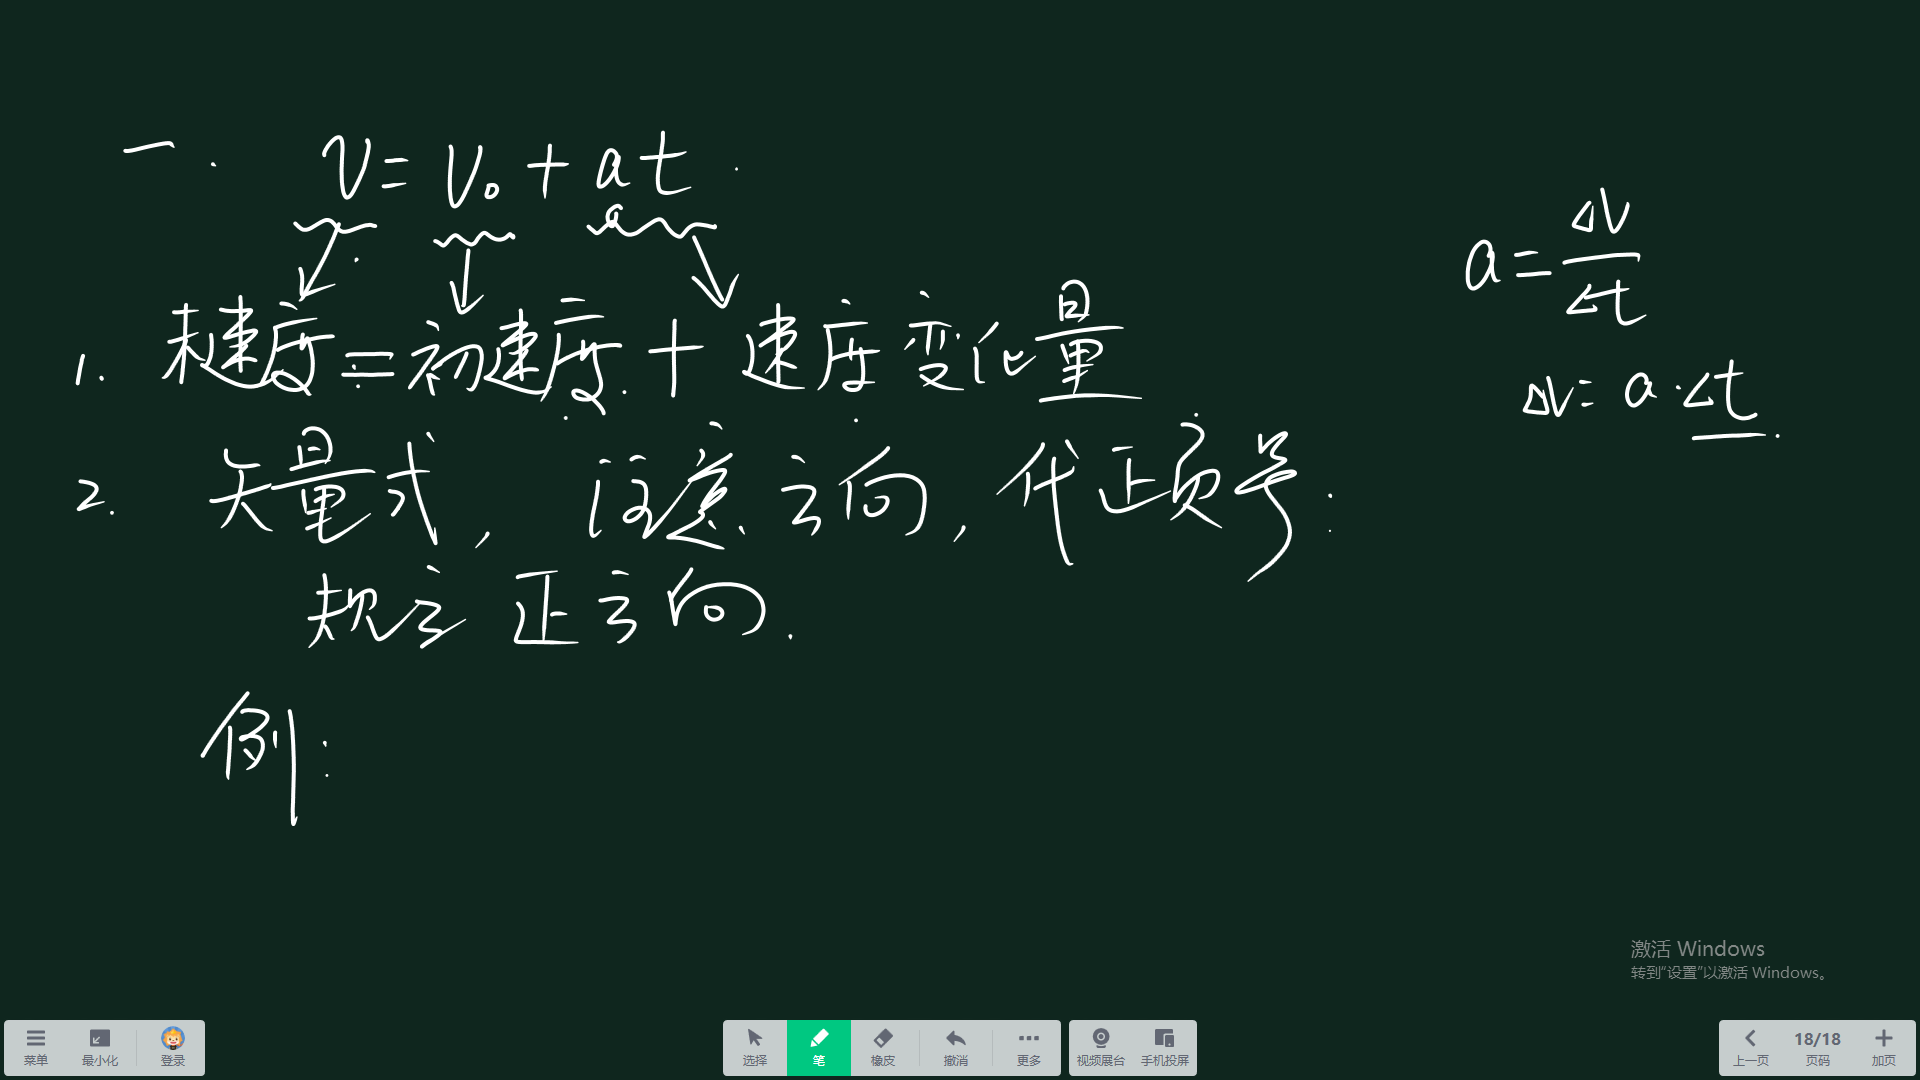 一. v = v₀ + at.
1. 末速度 = 初速度 + 速度变化量
2. 矢量式, 注意方向, 代正负号:
规定正方向.
例:
a = Δv/Δt
Δv = a·Δt
激活 Windows
转到“设置”以激活 Windows。
菜单 最小化 登录 选择 笔 橡皮 撤消 更多 视频展台 手机投屏 上一页 18/18 页码 加页